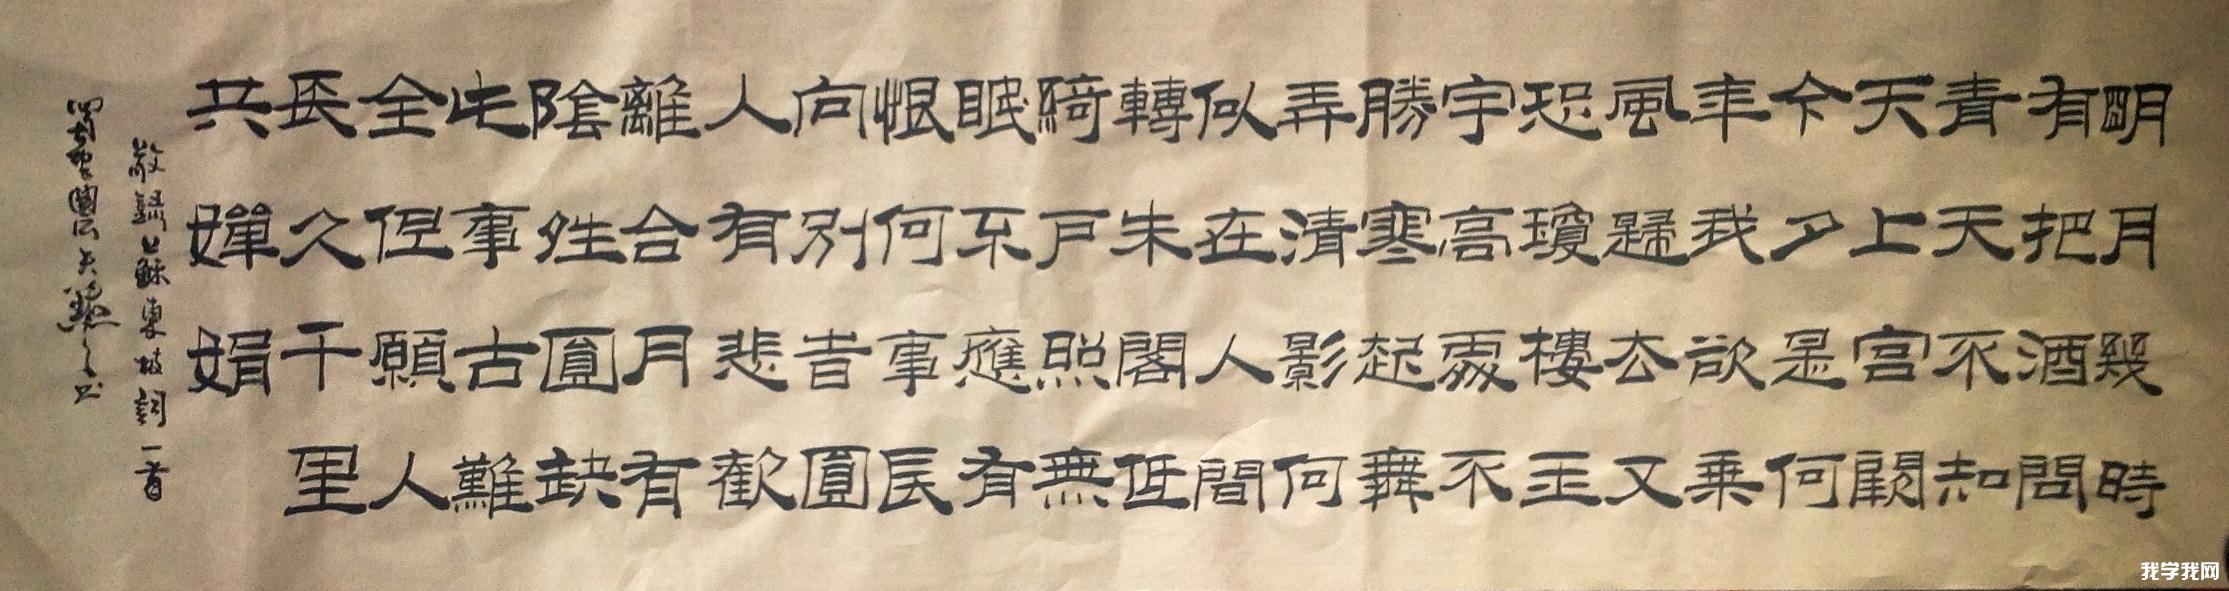 明月幾時
有把酒問
青天不知
天上宮闕
今夕是何
年我欲乘
風歸去又
恐瓊樓玉
宇高處不
勝寒起舞
弄清影何
似在人間
轉朱閣低
綺戶照無
眠不應有
恨何事長
向別旹圓
人有悲歡
離合月有
陰夝圓缺
此事古難
全但願人
長久千里
共嬋娟
敬錄蘇東坡詞一首
我学我网